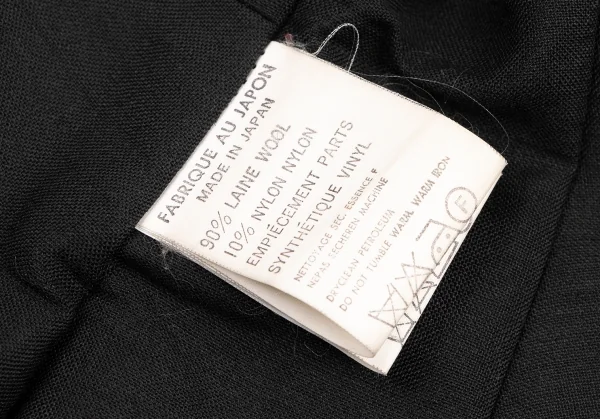 FABRIQUE AU JAPON
MADE IN JAPAN
90% LAINE WOOL
10% NYLON NYLON
EMPIECEMENT PARTS
SYNTHÉTIQUE VINYL
NETTOYAGE SEC. ESSENCE F
NEPAS SECHEREN MACHINE
DRYCLEAN PETROLEUM
DO NOT TUMBLE WARM. WARM IRON.
F